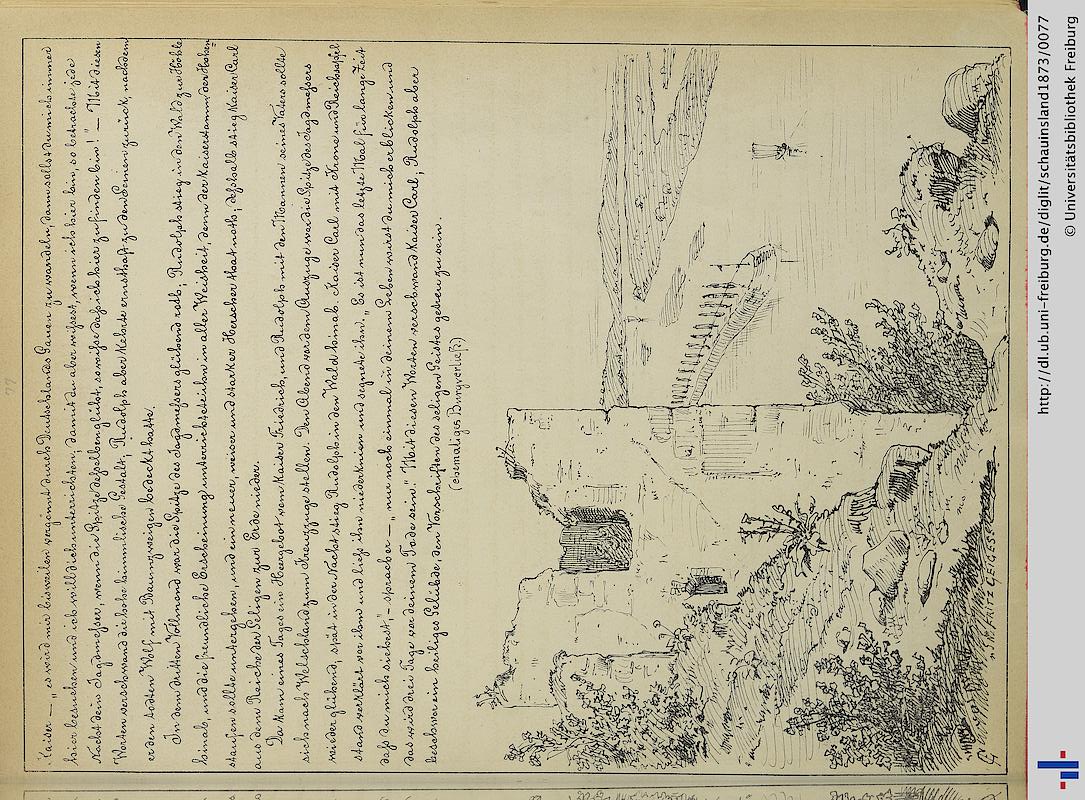 77
Kaiser –, „es wird mir bisweilen vergönnt durch Deutschlands Gauen zu wandeln, dann sollst du mich immer
hier besuchen und ich will dich unterrichten; damit du aber wissest, wenn ich hier bin, so betrachte jede
Nacht dein Jagdmesser, wenn die Spitze desselben glüht, so wisse daß ich hier zu finden bin! “ – Mit diesen
Worten verschwand die hohe himmlische Gestalt, Rudolph aber kehrte ernsthaft zu den Seinen zurück, nachdem
er den todten Wolf mit Baumzweigen bedeckt hatte.
In dem dritten Vollmond war die Spitze des Jagdmessers glühend roth, Rudolph stieg in den Wald zur Höhle
hinab, und die freundliche Erscheinung unterrichtete ihn in aller Weisheit, denn der Kaiserstamm der Hohen-
staufen sollte untergehen, und ein neuer, weiser und starker Herrscher that noth; deßhalb stieg Kaiser Carl
aus dem Reiche der Seligen zur Erde nieder.
Da kam eines Tages ein Heergebot vom Kaiser Friedrich, und Rudolph mit den Mannen seines Vaters sollte
sich nach Welschland zum Kreuzzuge stellen. Den Abend vor dem Auszuge war die Spitze des Jagdmessers
wieder glühend, spät in der Nacht stieg Rudolph in den Wald hinab. Kaiser Carl mit Krone und Reichsapfel
stand verklärt vor ihm und ließ ihn niederknien und segnete ihn. „Es ist nun das letzte Mal für lange Zeit
daß du mich siehest“, – sprach er –, „nur noch einmal in deinem Leben wirst du mich erblicken und
das wird drei Tage vor deinem Tode sein.“ Mit diesen Worten verschwand Kaiser Carl, Rudolph aber
beschwor ein heiliges Gelübde, den Vorschriften des seligen Geistes getreu zu sein.
(ehemaliges Burgverließ)
FRITZ GEIGES
http://dl.ub.uni-freiburg.de/diglit/schauinsland1873/0077
© Universitätsbibliothek Freiburg